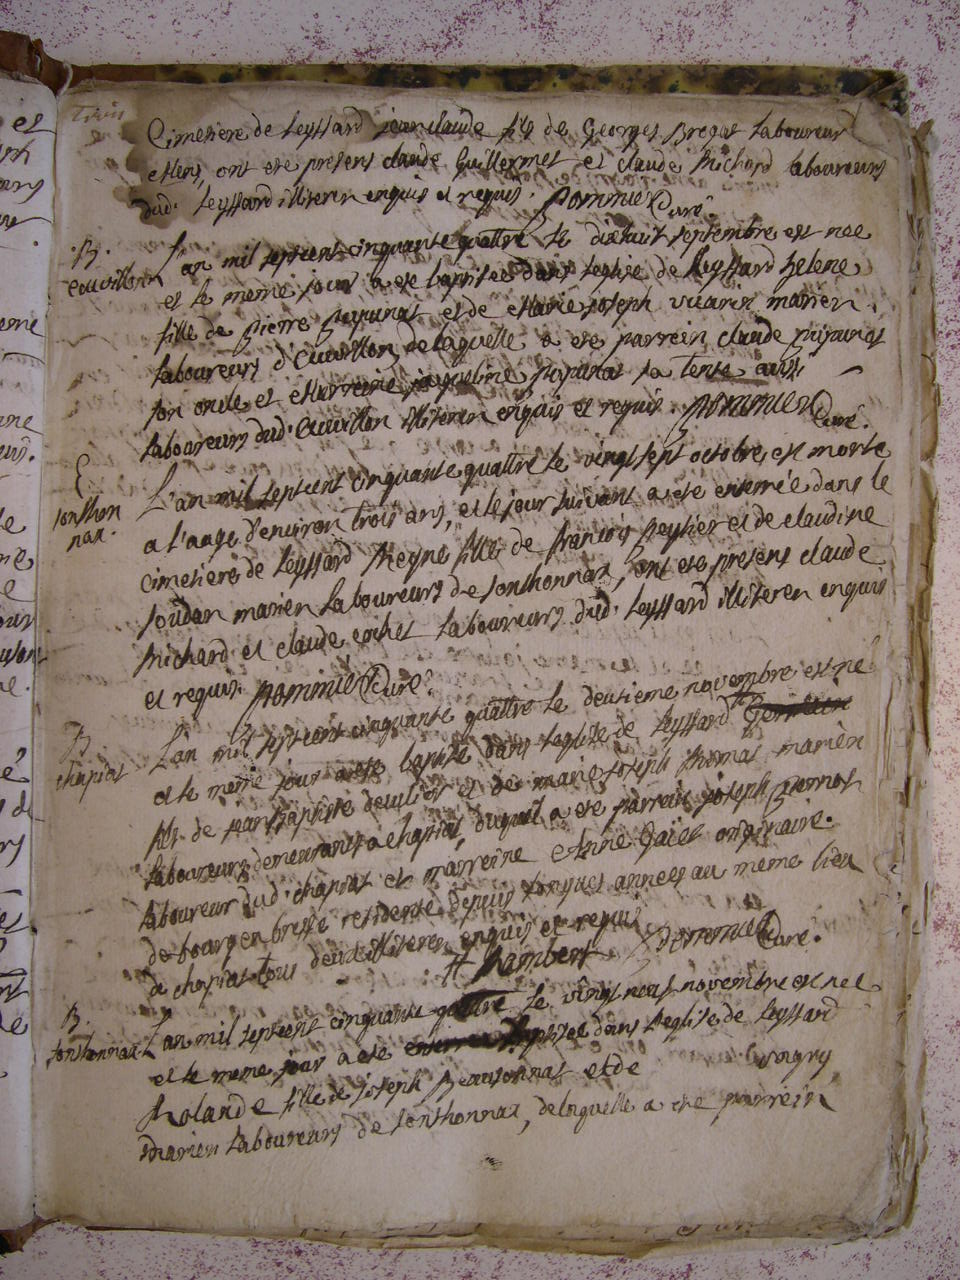 Cimetiere de Leyssard jean claude fils de Georges Bregat Laboureur
ont ete presens claude Guillermet et claude Michard laboureurs
dud. Leyssard illiterez enquis et requis. Pommiez Curé.
B.
Cuvillon
L'an mil septcent cinquante quattre le dixhuit septembre est nee
et le meme jour a ete baptisée dans leglise de Leyssard helene
fille de pierre pupunat et de Marie joseph vuarin mariez
laboureurs d'Cuvillon, delaquelle a ete parrein claude pupunat
son oncle et Marreine jaqueline pupunat sa tente aussi
laboureurs dud. Cuvillon illiterez enquis et requis. pommiez Curé.
E
sonthon
nax.
L'an mil septcent cinquante quattre le vingt sept octobre est morte
a l'aage d'environ trois ans, et le jour suivant a ete enterrée dans le
cimetiere de Leyssard fille de francois et de claudine
soudan mariez Laboureurs de sonthonnax, ont ete presens claude
Michard et claude cochet Laboureurs dud. Leyssard illiterez enquis
et requis. pommiez Curé.
B
chapiat
L'an mil septcent cinquante quattre le deuxieme novembre est né
et le meme jour a ete baptisé dans leglise de Leyssard
fils de jean Baptiste et de marie joseph thomas mariez
laboureurs demeurants a chapiat, duquel a ete parrein joseph
laboureur dud. chapiat et marreine Anne originaire
de bourg en bresse residente depuis longues annees au meme lieu
de chapiat tous deux illiterez enquis et requis
Hambert Pommiez Curé.
B.
sonthonnax
L'an mil septcent cinquante quattre le vingt neuf novembre est nee
et le meme jour a ete baptisée dans leglise de Leyssard
Rolande fille de joseph Beausonnat et de
mariez Laboureurs de sonthonnax, delaquelle a ete parrein